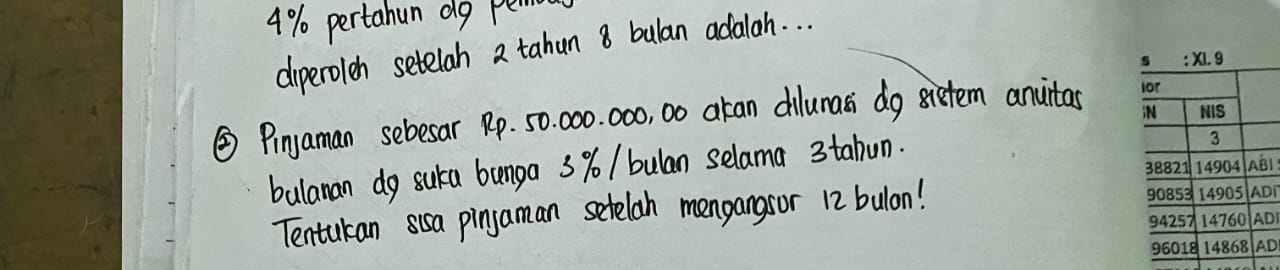 4% pertahun dg
diperoleh setelah 2 tahun 8 bulan adalah...
⑤ Pinjaman sebesar Rp. 50.000.000,00 akan dilunasi dg sistem anuitas
bulanan dg suku bunga 3% / bulan selama 3 tahun.
Tentukan sisa pinjaman setelah mengangsur 12 bulan!
: XI. 9
NIS
3
38821 14904 ABI
90853 14905 ADI
94257 14760 ADI
96018 14868 AD